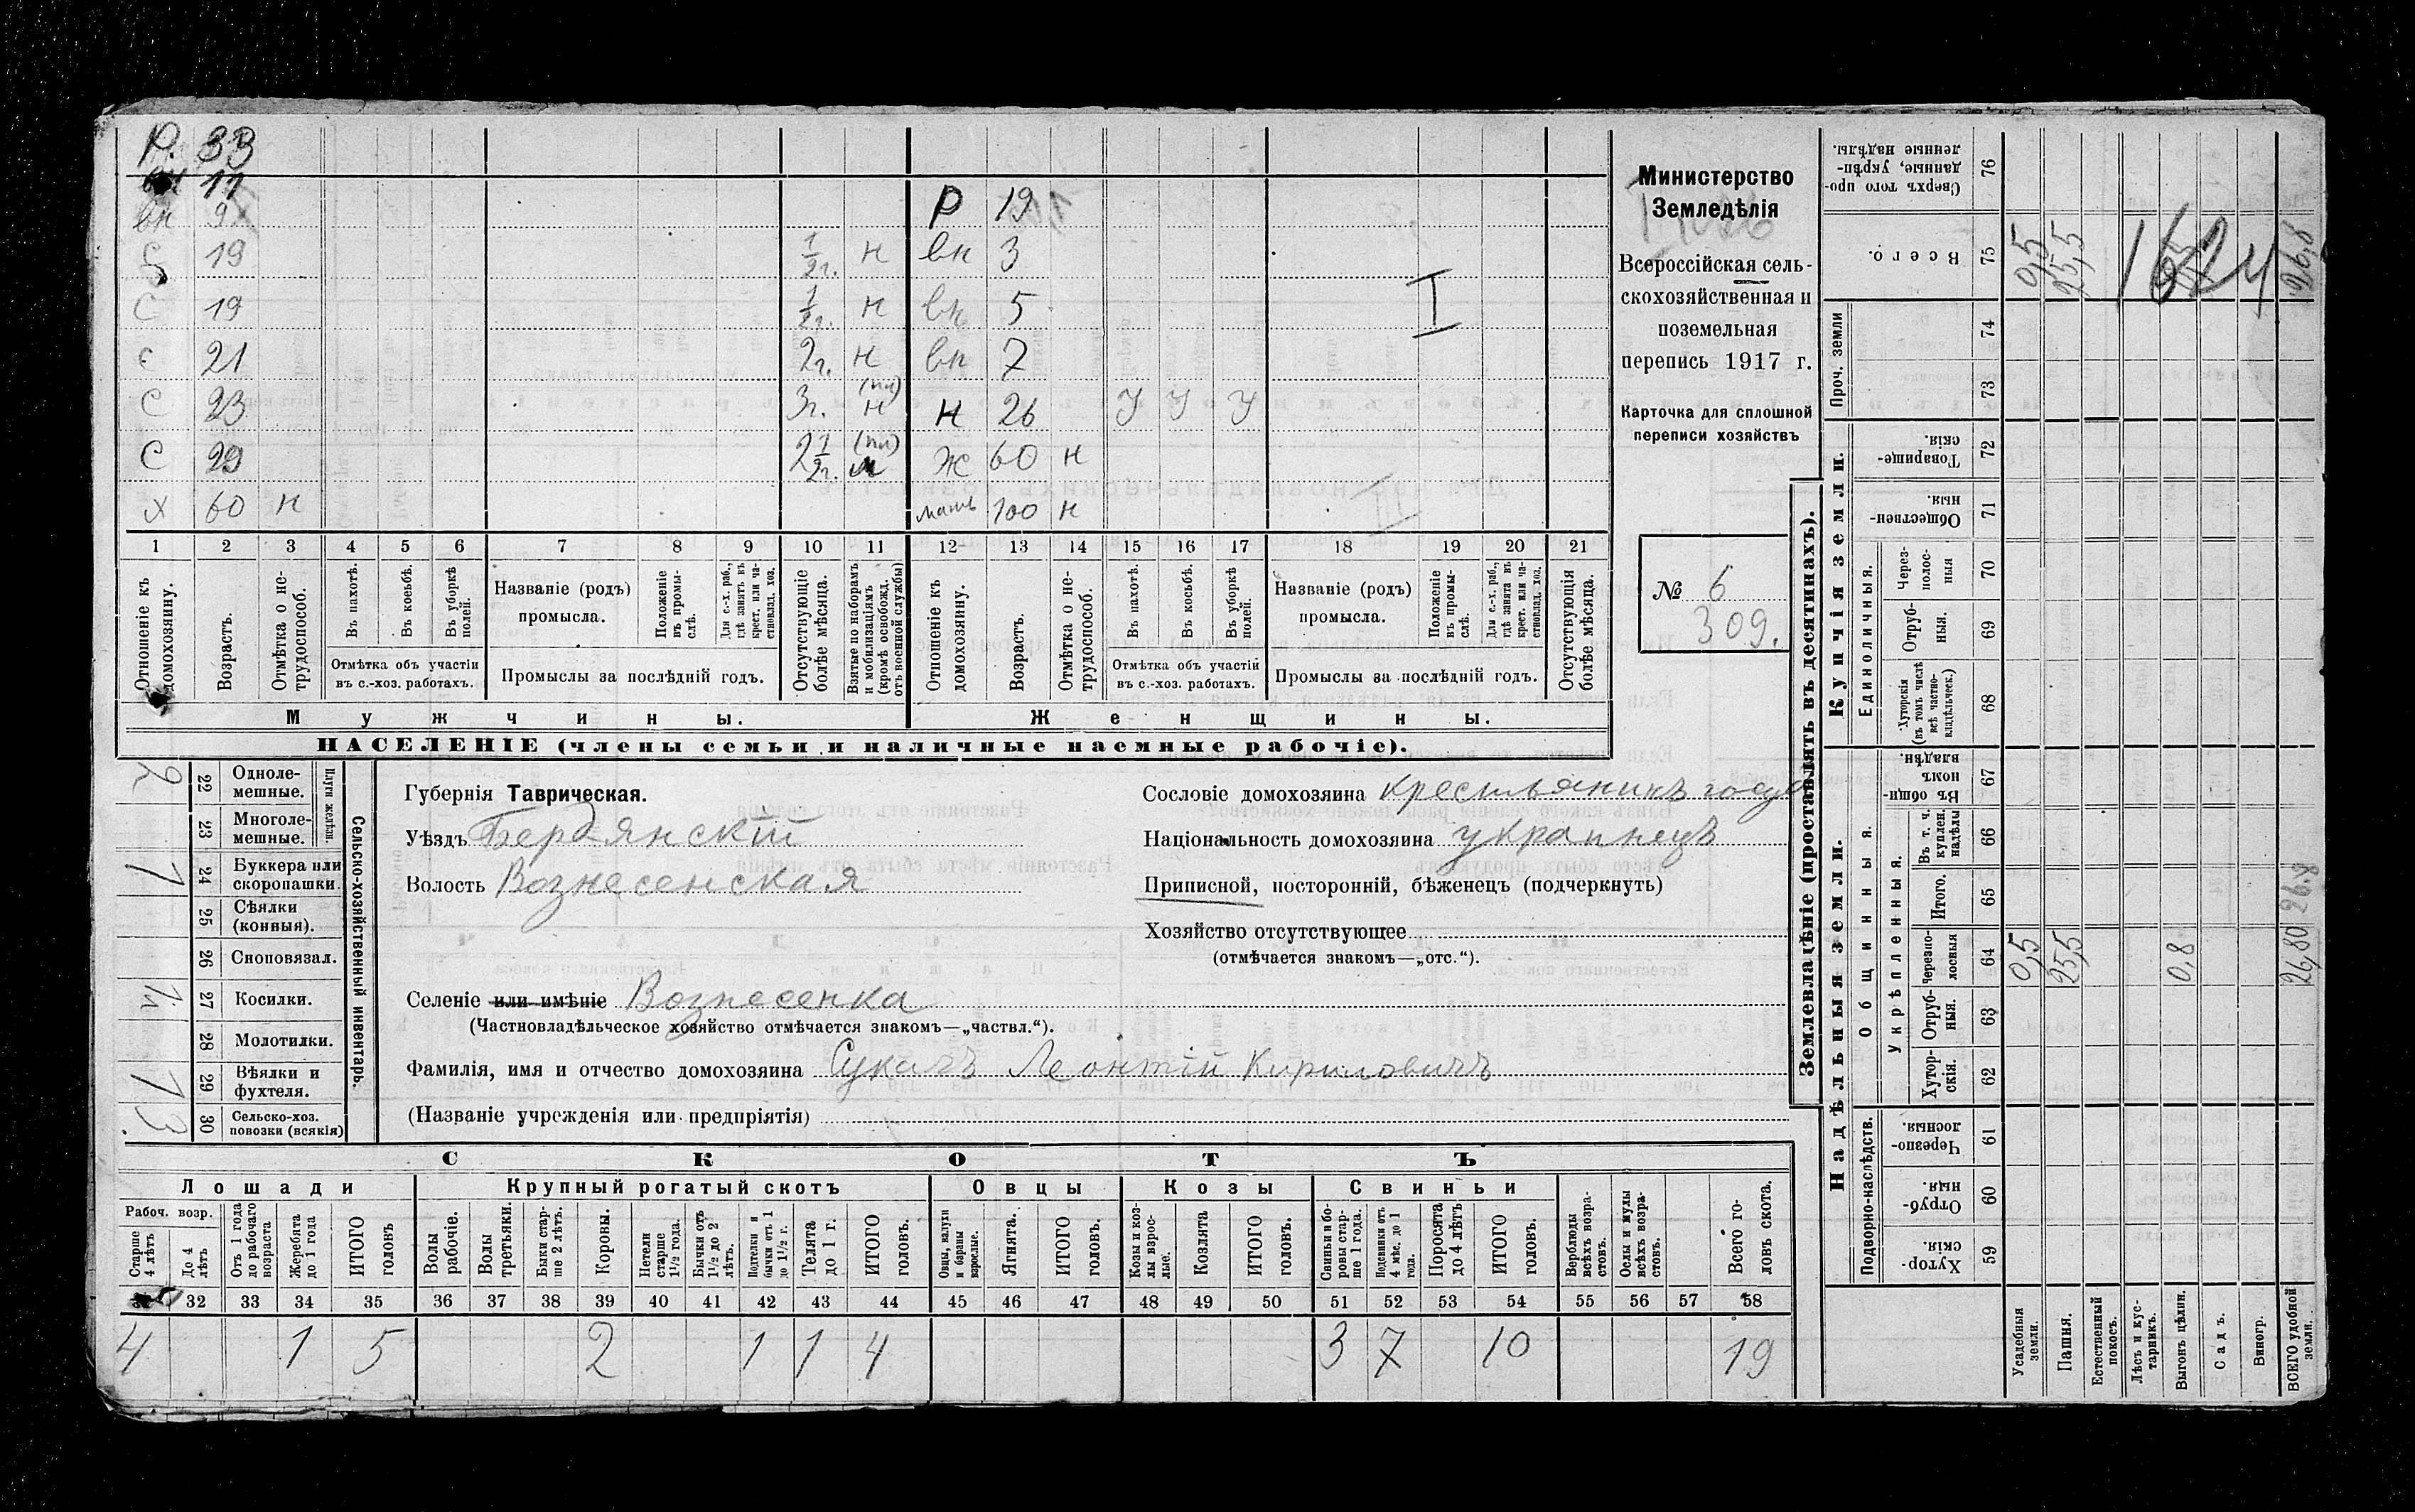 Р. 33
11
вн 9
Р 19
С 19 1/2 г. н вн 3
С 19 1/2 г. н вн 5
I
с 21 2 г. н вн 7
С 23 3 г. (пл) н Н 26 У У У
С 29 2 1/2 г. (пл) Ж 60 н
Х 60 н мать 100 н
1 2 3 4 5 6 7 8 9 10 11 12 13 14 15 16 17 18 19 20 21
Отношеніе къ домохозяину.
Возрастъ.
Отмѣтка о не-
трудоспособ.
Въ пахотѣ.
Въ косьбѣ.
Въ уборкѣ полей.
Названіе (родъ)
промысла.
Положеніе въ промы-
слѣ.
Для с.-х. раб., гдѣ занятъ въ крест. или ча-
стновлад. хоз.
Отмѣтка объ участіи
въ с.-хоз. работахъ.
Промыслы за послѣдній годъ.
Отсутствующіе болѣе мѣсяца.
Взятые по наборамъ и мобилизаціямъ (кромѣ освобожд. отъ военной службы)
Отношеніе къ домохозяину.
Возрастъ.
Отмѣтка о не-
трудоспособ.
Въ пахотѣ.
Въ косьбѣ.
Въ уборкѣ полей.
Названіе (родъ)
промысла.
Положеніе въ промы-
слѣ.
Для с.-х. раб., гдѣ занята въ крест. или ча-
стновлад. хоз.
Отмѣтка объ участіи
въ с.-хоз. работахъ.
Промыслы за послѣдній годъ.
Отсутствующія болѣе мѣсяца.
Мужчины. Женщины.
НАСЕЛЕНІЕ (члены семьи и наличные наемные рабочіе).
Министерство
Земледѣлія
Всероссійская сель-
скохозяйственная и
поземельная
перепись 1917 г.
Карточка для сплошной
переписи хозяйствъ
№ 6
309.
Сельско-хозяйственный инвентарь.
Плуги желѣзн.
2 22 Одноле-
мешные.
23 Многоле-
мешные.
1 24 Буккера или
скоропашки.
25 Сѣялки
(конныя).
26 Сноповязал.
27 Косилки.
28 Молотилки.
1 29 Вѣялки и
фухтеля.
3 30 Сельско-хоз.
повозки (всякія)
Губернія Таврическая.
Уѣздъ Бердянскій
Волость Вознесенская
Сословіе домохозяина крестьянинъ госуд
Національность домохозяина украинецъ
Приписной, посторонній, бѣженецъ (подчеркнуть)
Хозяйство отсутствующее
(отмѣчается знакомъ—„отс.“).
Селеніе или имѣніе Вознесенка
(Частновладѣльческое хозяйство отмѣчается знакомъ—„частвл.“).
Фамилія, имя и отчество домохозяина Сукачъ Леонтій Кириловичъ
(Названіе учрежденія или предпріятія)
СКОТЪ
Лошади Крупный рогатый скотъ Овцы Козы Свиньи
Рабоч. возр.
Старше 4 лѣтъ
До 4 лѣтъ
Отъ 1 года до рабочаго возраста
Жеребята до 1 года
ИТОГО головъ
Волы рабочіе.
Волы третьяки.
Быки стар-
ше 2 лѣтъ.
Коровы.
Нетели старше 1½ года.
Бычки отъ 1½ до 2 лѣтъ.
Подтелки и бычки отъ 1 до 1½ г.
Телята до 1 г.
ИТОГО головъ.
Овцы, валухи и бараны взрослые.
Ягнята.
ИТОГО головъ.
Козы и коз-
лы взрос-
лые.
Козлята
ИТОГО головъ.
Свиньи и бо-
ровы стар-
ше 1 года.
Подсвинки отъ 4 мѣс. до 1 года.
Поросята до 4 лѣтъ
ИТОГО головъ.
Верблюды всѣхъ возра-
стовъ.
Ослы и мулы всѣхъ возра-
стовъ.
Всего го-
ловъ скота.
32 33 34 35 36 37 38 39 40 41 42 43 44 45 46 47 48 49 50 51 52 53 54 55 56 57 58
4 1 5 2 1 1 4 3 7 10 19
Землевладѣніе (проставлять въ десятинахъ).
Купчія земли.
Надѣльныя земли.
Сверхъ того про-
данные, укрѣп-
ленные надѣлы.
76
Всего. 75 0,5 25,5 26,8
Проч. земли 74
73
Товарище-
скія. 72
Обществен-
ныя. 71
Единоличныя.
Через-
полос-
ныя 70
Отруб-
ныя. 69
Хуторскія (въ томъ числѣ всѣ частно-
владѣльческ.) 68
Общинныя.
Въ общи-
номъ владѣн. 67
Укрѣпленныя.
Въ т. ч. куплен. надѣлы 66
Итого. 65 26,8
Черезпо-
лосныя 64 0,5 25,5 0,8 26,80
Отруб-
ныя. 63
Хутор-
скія. 62
Подворно-наслѣдств.
Черезпо-
лосныя. 61
Отруб-
ныя. 60
Хутор-
скія. 59
Усадебныя земли.
Пашня.
Естественный покосъ.
Лѣсъ и кус-
тарникъ.
Выгонъ цѣлин.
Садъ.
Виногр.
ВСЕГО удобной земли.